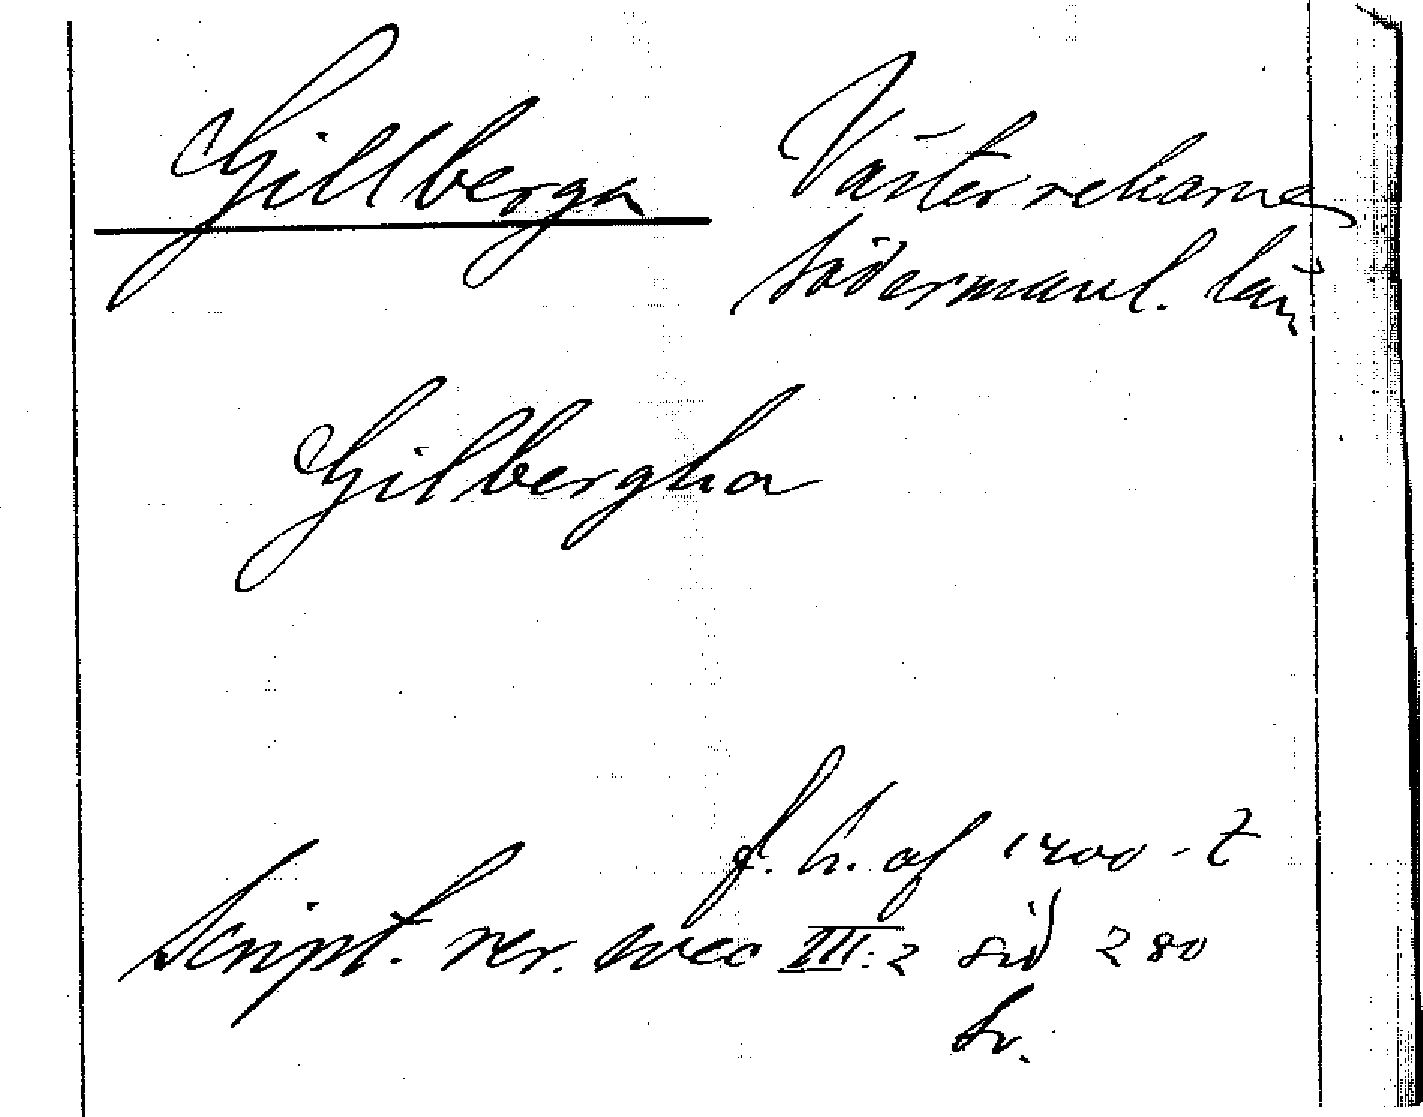 Gillberga Västerrekarne
Södermanl. län
Gilbergha
f. h. af 1400-t
Script. rer. svec III:2 sid 280
Sv.